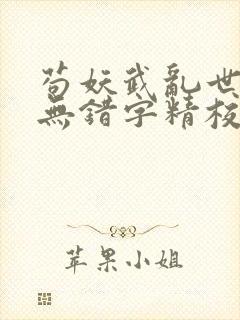 苟妖武亂世
無錯字精校
苹果小姐